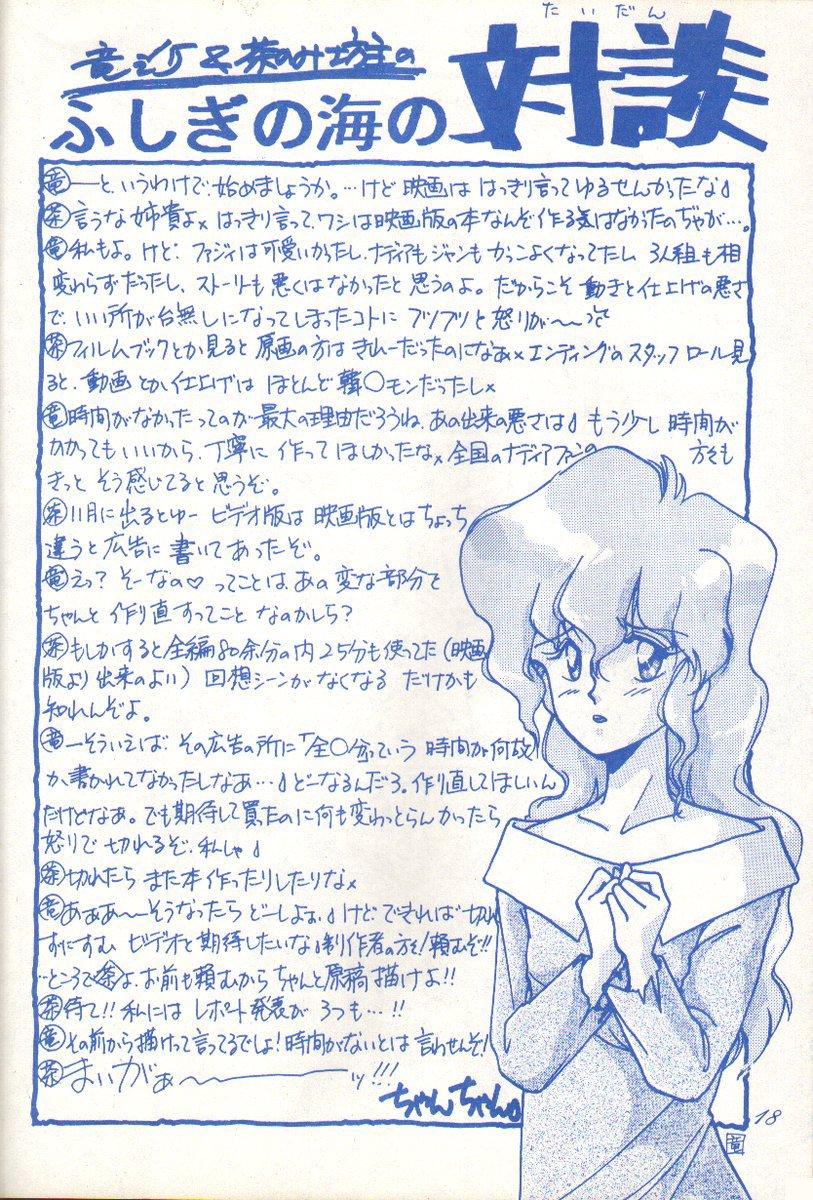 たいだん
竜之介&茶のみ坊主の
ふしぎの海の対談
竜—と、いうわけで、始めましょうか。…けど映画は はっきり言ってゆるせんかったな♪
茶言うな姉貴よ× はっきり言って、ワシは映画版の本なんぞ作る気はなかったのぢゃが…。
竜私もよ。けど、ファジィは可愛いかったし、ナディアもジャンもかっこよくなってたし 3人組も相
変わらずだったし、ストーリーも悪くはなかったと思うのよ。だからこそ動きと仕上げの悪さ
で、いい所が台無しになってしまったコトに ブツブツと怒りが〜〜
茶フィルムブックとか見ると原画の方はきれーだったのになぁ×エンディングのスタッフロール見
ると、動画とか仕上げは ほとんど韓〇モンだったし×
竜時間がなかったってのが最大の理由だろうね、あの出来の悪さは♪ もう少し時間が
かかってもいいから、丁寧に作ってほしかったな×全国のナディアファンの 方々も
きっと そう感じてると思うぞ。
茶11月に出るとゆー ビデオ版は映画版とはちょっち
違うと広告に書いてあったぞ。
竜えっ? そーなの♡ ってことは、あの変な部分を
ちゃんと作り直すってことなのかしら?
茶もしかすると全編80余分の内25分も使ってた(映画
版より出来のよい) 回想シーンがなくなる だけかも
知れんぞよ。
竜—そういえば、その広告の所に「全〇分」っていう時間が何故
か書かれてなかったしなぁ…♪どーなるんだろ。作り直してほしいん
だけどなぁ。でも期待して買ったのに何も変わっとらんかったら
怒りで切れるぞ、私しゃ♪
茶切れたら また本作ったりしたりな×
竜あぁぁ〜〜そうなったら どーしよぉ♪けど、できれば切れ
ずにすむ ビデオと期待したいな♪制作者の方々!頼むぞ!!
…ところで茶よ、お前も頼むからちゃんと原稿描けよ!!
茶待て!! 私には レポート発表が 3つも…!!
竜その前から描けって言ってるでしょ!時間がないとは言わせんぞ!
茶まいがぁ〜〜〜ッ!!!
ちゃんちゃん♪
18
竜